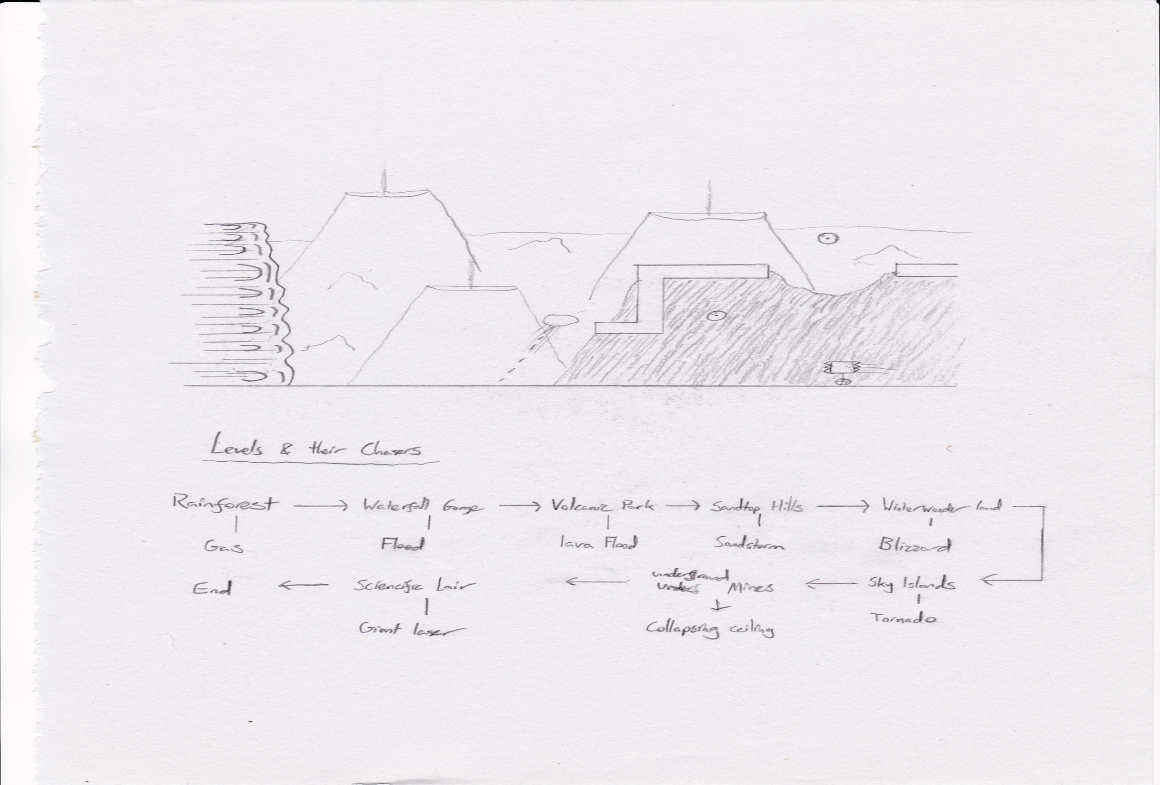 Levels & their Chasers
Rainforest → Waterfall Gorge → Volcanic Park → Sandtop Hills → Winterwonder land
Gas Flood lava Flood Sandstorm Blizzard
End ← Sciencific Lair ← underground Mines ← Sky Islands
Giant laser Collapsing ceiling Tornado